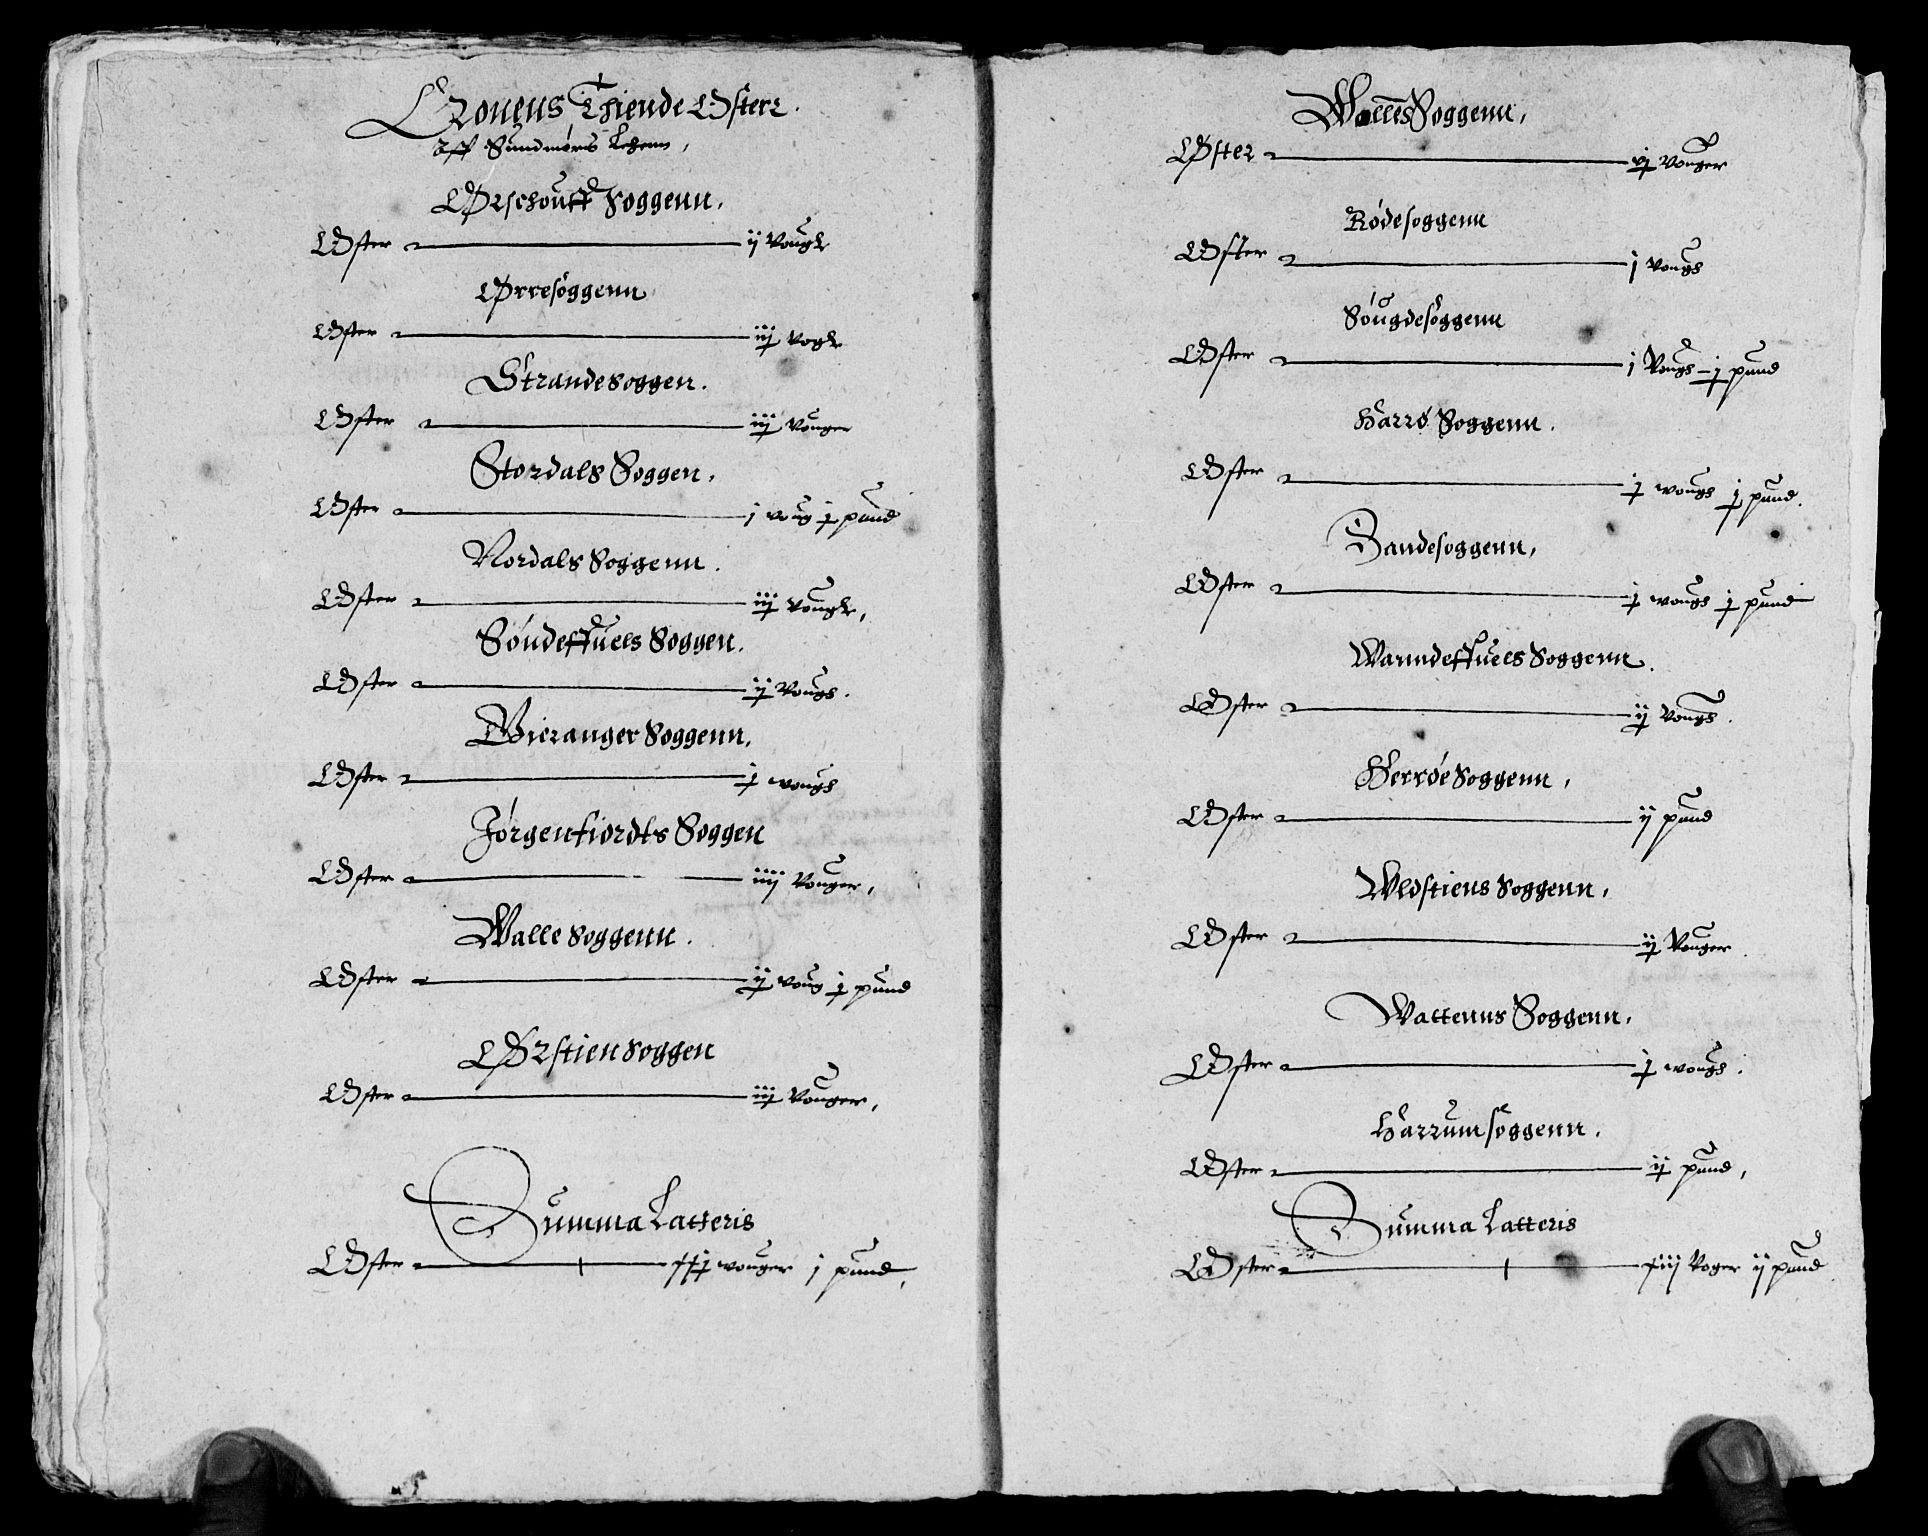 Cronens Thiende Osterr.
Aff Sundmørs Lehenn,
Ørschouff Soggenn.
Oster ij vougr
Ørresoggenn
Oster iij vogr
Strandesoggen.
Oster iij vouger
Stordals Soggen.
Oster j voug j pund
Nordals Soggenn.
Oster iij vougr,
Søndeffuels Soggen.
Oster ij vougs.
Gieranger Soggenn.
Oster j wougs
Jørgenfiordts Soggen
Oster iiij vouger,
Walle Soggenn.
Oster ij voug j pund
Ørstien Soggen
Oster iij vouger,
Summa Latteris
Oster wouger j pund,
Walles Soggenn,
Øster vouger
Rødesoggenn
Oster j vougs
Søugdesoggenn
Oster j vougs j pund
Harrø Soggenn.
Oster j wougs j pund.
Sandesoggenn,
Oster j wougs j pund
Wanndeffuels Soggenn.
Oster ij vougs.
Herrøe Soggenn,
Oster ij pund
Wlostiens Soggenn,
Oster ij vouger.
Wattenns Soggenn,
Oster j wougs.
Harrumsoggenn.
Oster ij pund,
Summa Latteris
Oster xiij voger ij pund